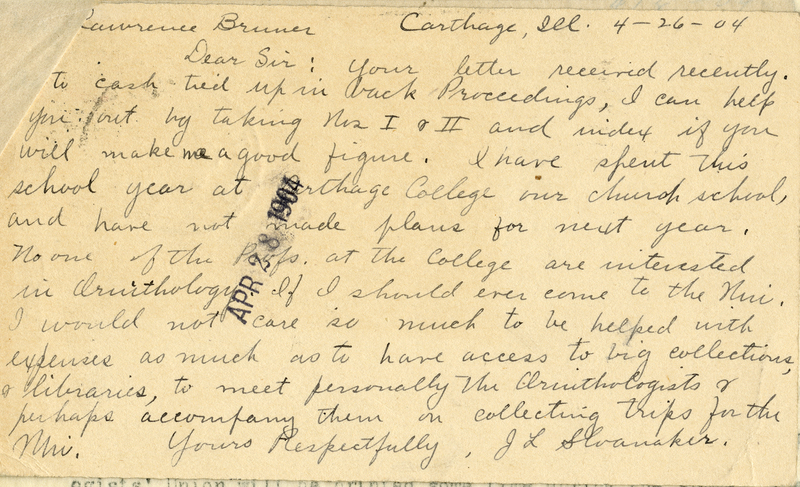 Lawrence Bruner Carthage, Ill. 4-26-04
Dear Sir: Your letter received recently.
to cash tied up in back Proceedings, I can help
you out by taking Nos I & II and index if you
will make me a good figure. I have spent this
school year at Carthage College our church school,
and have not made plans for next year.
No one of the Profs. at the College are interested
in Ornithology. If I should ever come to the Uni.
I would not care so much to be helped with
expenses as much as to have access to big collections,
& libraries, to meet personally the Ornithologists &
perhaps accompany them on collecting trips for the
Uni. Yours Respectfully, J L Sloanaker.
APR 28 1904
ogists' Union will be